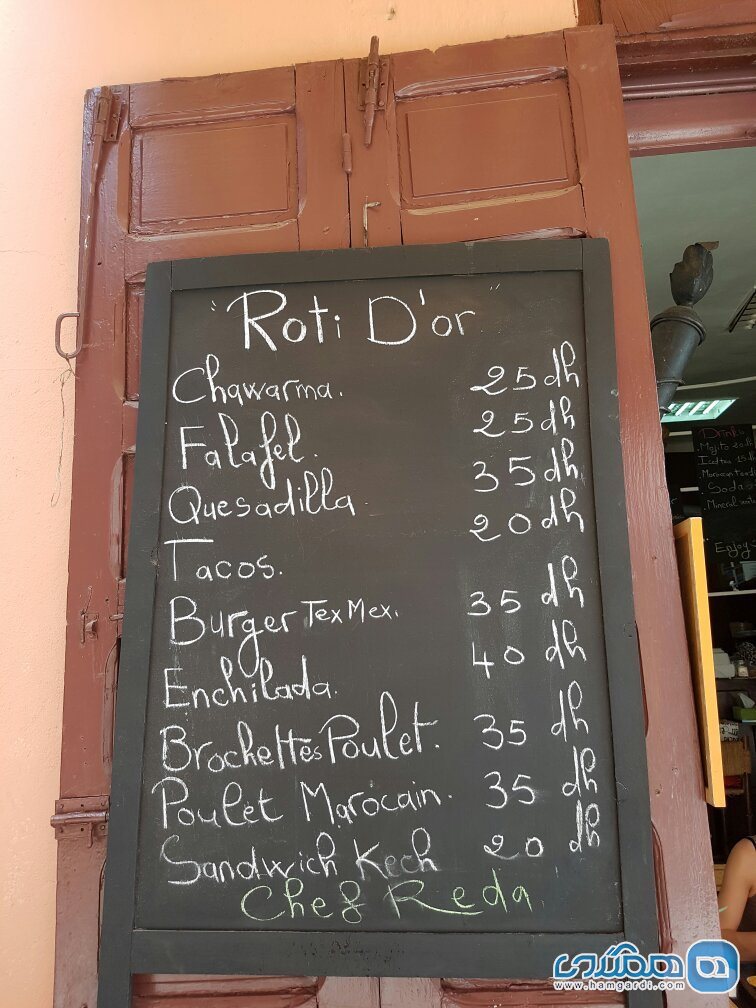 "Roti D'or"
Chawarma. 25 dh
Falafel. 25 dh
Quesadilla 35 dh
Tacos. 20 dh
Burger Tex Mex. 35 dh
Enchilada. 40 dh
Brochettes Poulet. 35 dh
Poulet Marocain. 35 dh
Sandwich Kech 20 dh
Chef Reda.
Drinks
Mojito
Iced tea
Moroccan
Soda
Mineral
Enjoy
همگردی
www.hamgardi.com